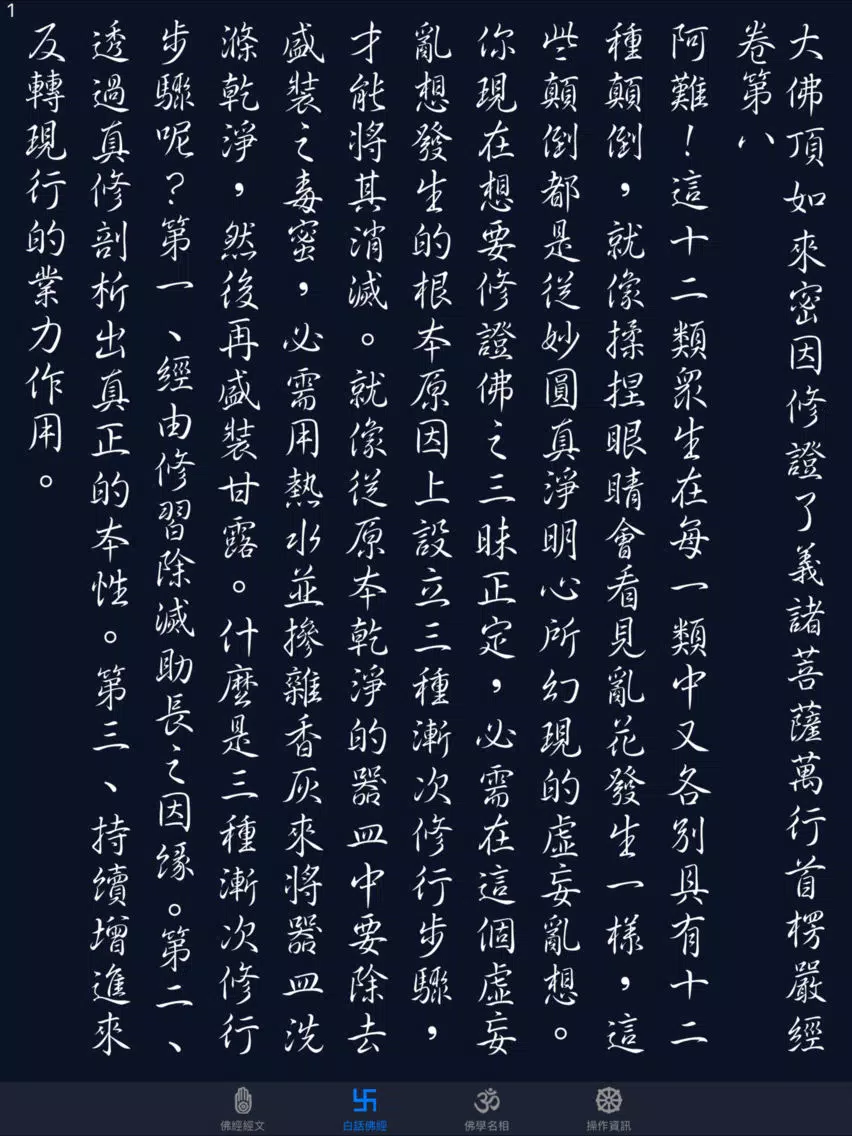 1
大佛頂如來密因修證了義諸菩薩萬行首楞嚴經
卷第八
阿難！這十二類眾生在每一類中又各別具有十二
種顛倒，就像揉捏眼睛會看見亂花發生一樣，這
些顛倒都是從妙圓真淨明心所幻現的虛妄亂想。
你現在想要修證佛之三昧正定，必需在這個虛妄
亂想發生的根本原因上設立三種漸次修行步驟，
才能將其消滅。就像從原本乾淨的器皿中要除去
盛裝之毒蜜，必需用熱水並摻雜香灰來將器皿洗
滌乾淨，然後再盛裝甘露。什麼是三種漸次修行
步驟呢？第一、經由修習除滅助長之因緣。第二、
透過真修剖析出真正的本性。第三、持續增進來
反轉現行的業力作用。
佛經經文
白話佛經
佛學名相
操作資訊